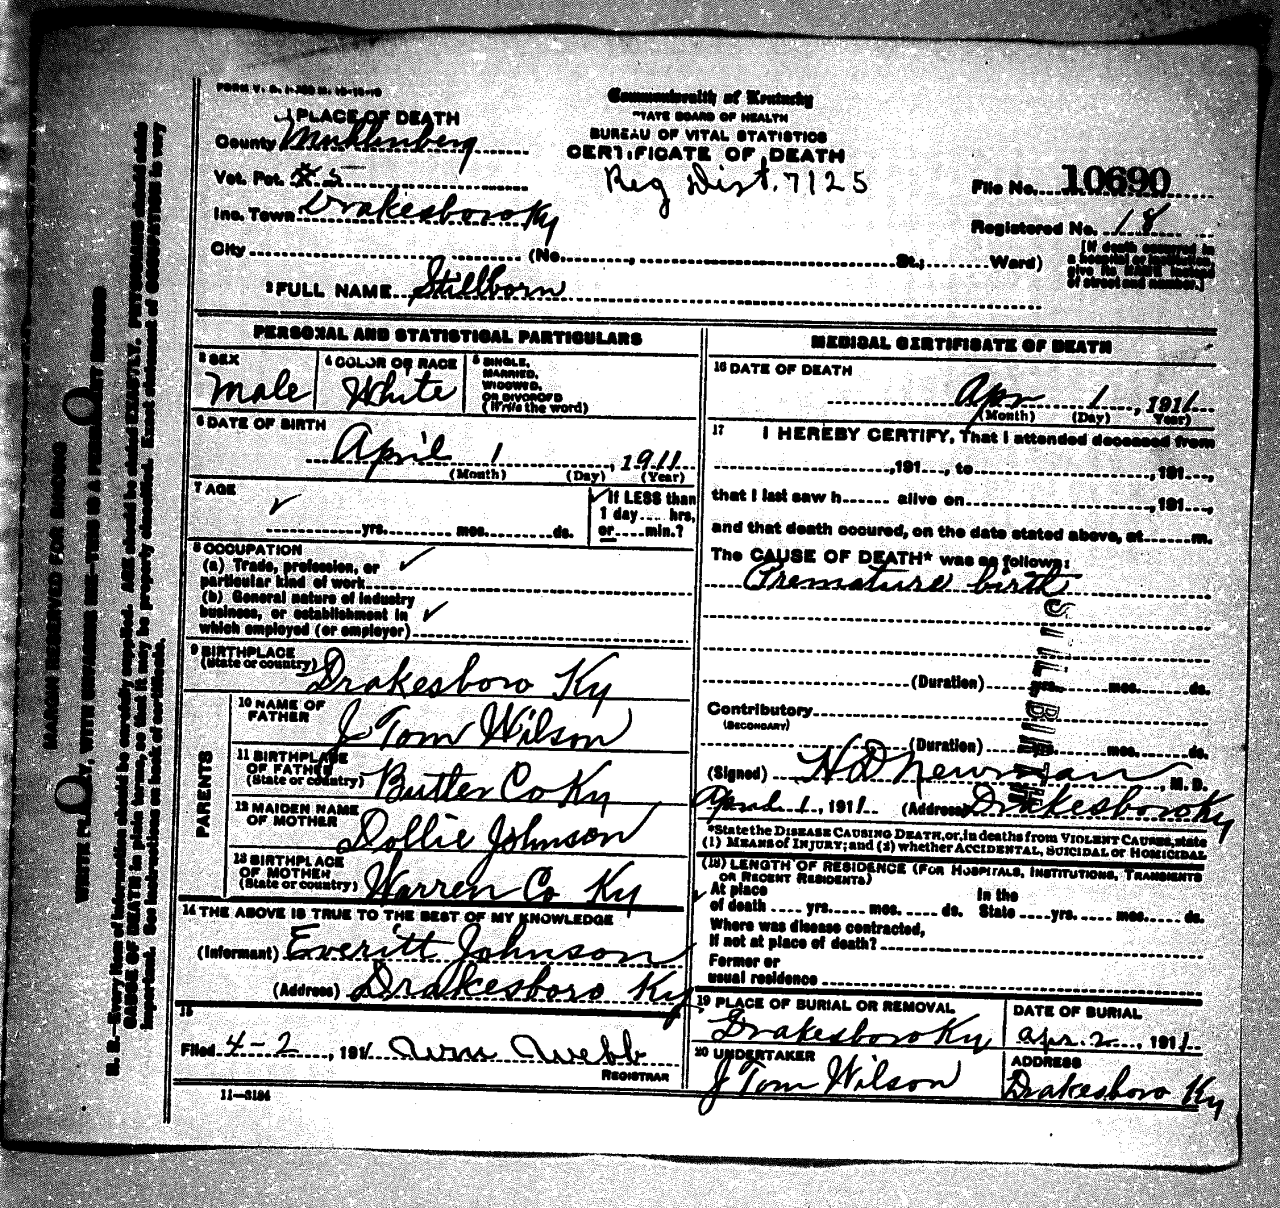 FORM V. S. 1-
PLACE OF DEATH
County Muhlenberg
Vot. Pct. #5
Inc. Town Drakesboro Ky
City (No. , St.; Ward)
Commonwealth of Kentucky
STATE BOARD OF HEALTH
BUREAU OF VITAL STATISTICS
CERTIFICATE OF DEATH
Reg Dist. 7125
File No. 10690
Registered No. 18
[If death occurred in
a hospital or institution
give its NAME instead
of street and number.]
2 FULL NAME Stillborn
PERSONAL AND STATISTICAL PARTICULARS
3 SEX
Male
4 COLOR OR RACE
White
5 SINGLE,
MARRIED,
WIDOWED,
OR DIVORCED
(Write the word)
6 DATE OF BIRTH
April 1, 1911
(Month) (Day) (Year)
7 AGE
yrs. mos. ds.
If LESS than
1 day.... hrs,
or....min.?
8 OCCUPATION
(a) Trade, profession, or
particular kind of work
(b) General nature of industry
business, or establishment in
which employed (or employer)
9 BIRTHPLACE
(State or country) Drakesboro Ky
PARENTS
10 NAME OF
FATHER J Tom Wilson
11 BIRTHPLACE
OF FATHER
(State or country) Butler Co Ky
12 MAIDEN NAME
OF MOTHER Dollie Johnson
13 BIRTHPLACE
OF MOTHER
(State or country) Warren Co Ky
14 THE ABOVE IS TRUE TO THE BEST OF MY KNOWLEDGE
(Informant) Everitt Johnson
(Address) Drakesboro Ky
15
Filed 4-2, 1911 Wm Webb
REGISTRAR
11—3184
MEDICAL CERTIFICATE OF DEATH
16 DATE OF DEATH
Apr 1, 1911
(Month) (Day) Year)
17 I HEREBY CERTIFY, That I attended deceased from
,191...., to ,191....,
that I last saw h...... alive on ,191....,
and that death occured, on the date stated above, at.......m.
The CAUSE OF DEATH* was as follows:
Premature birth
(Duration) yrs. mos. ds.
Contributory
(SECONDARY)
(Duration) yrs. mos. ds.
(Signed) H D Newman, M. D.
April 1, 1911 (Address) Drakesboro Ky
*State the DISEASE CAUSING DEATH, or, in deaths from VIOLENT CAUSES, state
(1) MEANS of INJURY; and (2) whether ACCIDENTAL, SUICIDAL or HOMICIDAL
(18) LENGTH OF RESIDENCE (FOR HOSPITALS, INSTITUTIONS, TRANSIENTS
OR RECENT RESIDENTS)
At place
of death .... yrs. .... mos. .... ds.
In the
State .... yrs. .... mos. .... ds.
Where was disease contracted,
If not at place of death?
Former or
usual residence
19 PLACE OF BURIAL OR REMOVAL
Drakesboro Ky
DATE OF BURIAL
Apr. 2, 1911
20 UNDERTAKER
J Tom Wilson
ADDRESS
Drakesboro Ky
MARGIN RESERVED FOR BINDING
WRITE PLAINLY, WITH UNFADING INK—THIS IS A PERMANENT RECORD
N. B.—Every item of information should be carefully supplied. AGE should be stated EXACTLY. PHYSICIANS should state
CAUSE OF DEATH in plain terms, so that it may be properly classified. Exact statement of OCCUPATION is very
important. See instructions on back of certificate.